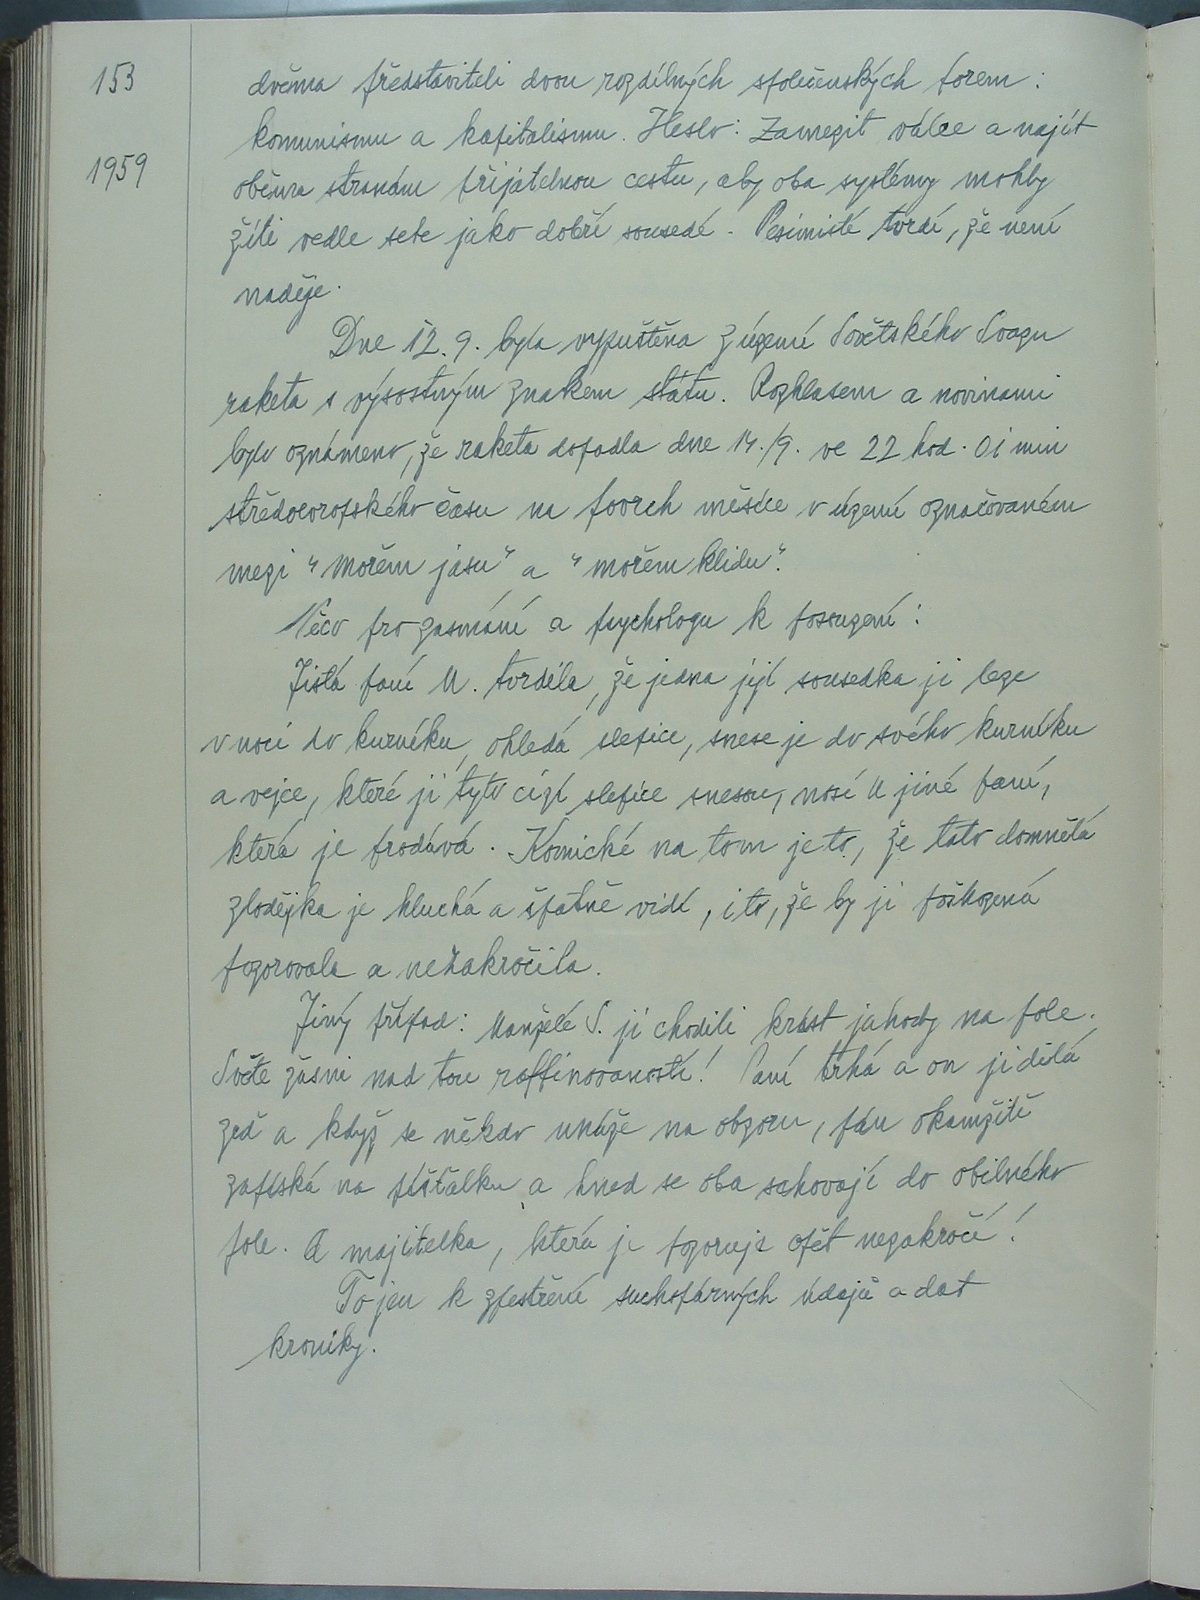 153
1959
dvěma představiteli dvou rozdílných společenských forem:
komunismu a kapitalismu. Heslo: Zamezit válce a najít
oběma stranám přijatelnou cestu, aby oba systémy mohly
žíti vedle sebe jako dobří sousedé. Pesimisté tvrdí, že není
naděje.
Dne 12. 9. byla vypuštěna z území Sovětského Svazu
raketa s výsostným znakem státu. Rozhlasem a novinami
bylo oznámeno, že raketa dopadla dne 14./9. ve 22 hod. 01 min
středoevropského času na povrch měsíce v území označovaném
mezi "mořem jasu" a "mořem klidu".
Něco pro zasmání a psychologu k posouzení:
Jistá paní U. tvrdila, že jedna její sousedka jí leze
v noci do kurníku, ohledá slepice, snese je do svého kurníku
a vejce, které jí tyto cizí slepice snesou, nosí k jiné paní,
která je prodává. Komické na tom je to, že tato domnělá
zlodějka je hluchá a špatně vidí, i to, že by ji poškozená
pozorovala a nezakročila.
Jiný případ: Manželé S. jí chodili krást jahody na pole.
Světe žasni nad tou raffinovaností! Paní trhá a on jí dělá
zeď a když se někdo ukáže na obzoru, pán okamžitě
zapíská na píšťalku a hned se oba schovají do obilného
pole. A majitelka, která je pozoruje opět nezakročí!
To jen k zpestření suchopárných údajů a dat
kroniky.